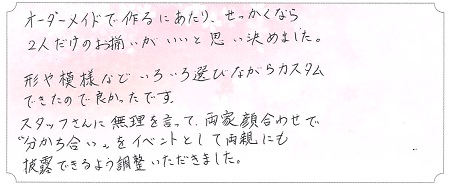 オーダーメイドで作るにあたり、せっかくなら
2人だけのお揃いがいいと思い決めました。
形や模様などいろいろ選びながらカスタム
できたので良かったです。
スタッフさんに無理を言って、両家顔合わせで
"分かち合い"をイベントとして両親にも
披露できるよう調整いただきました。